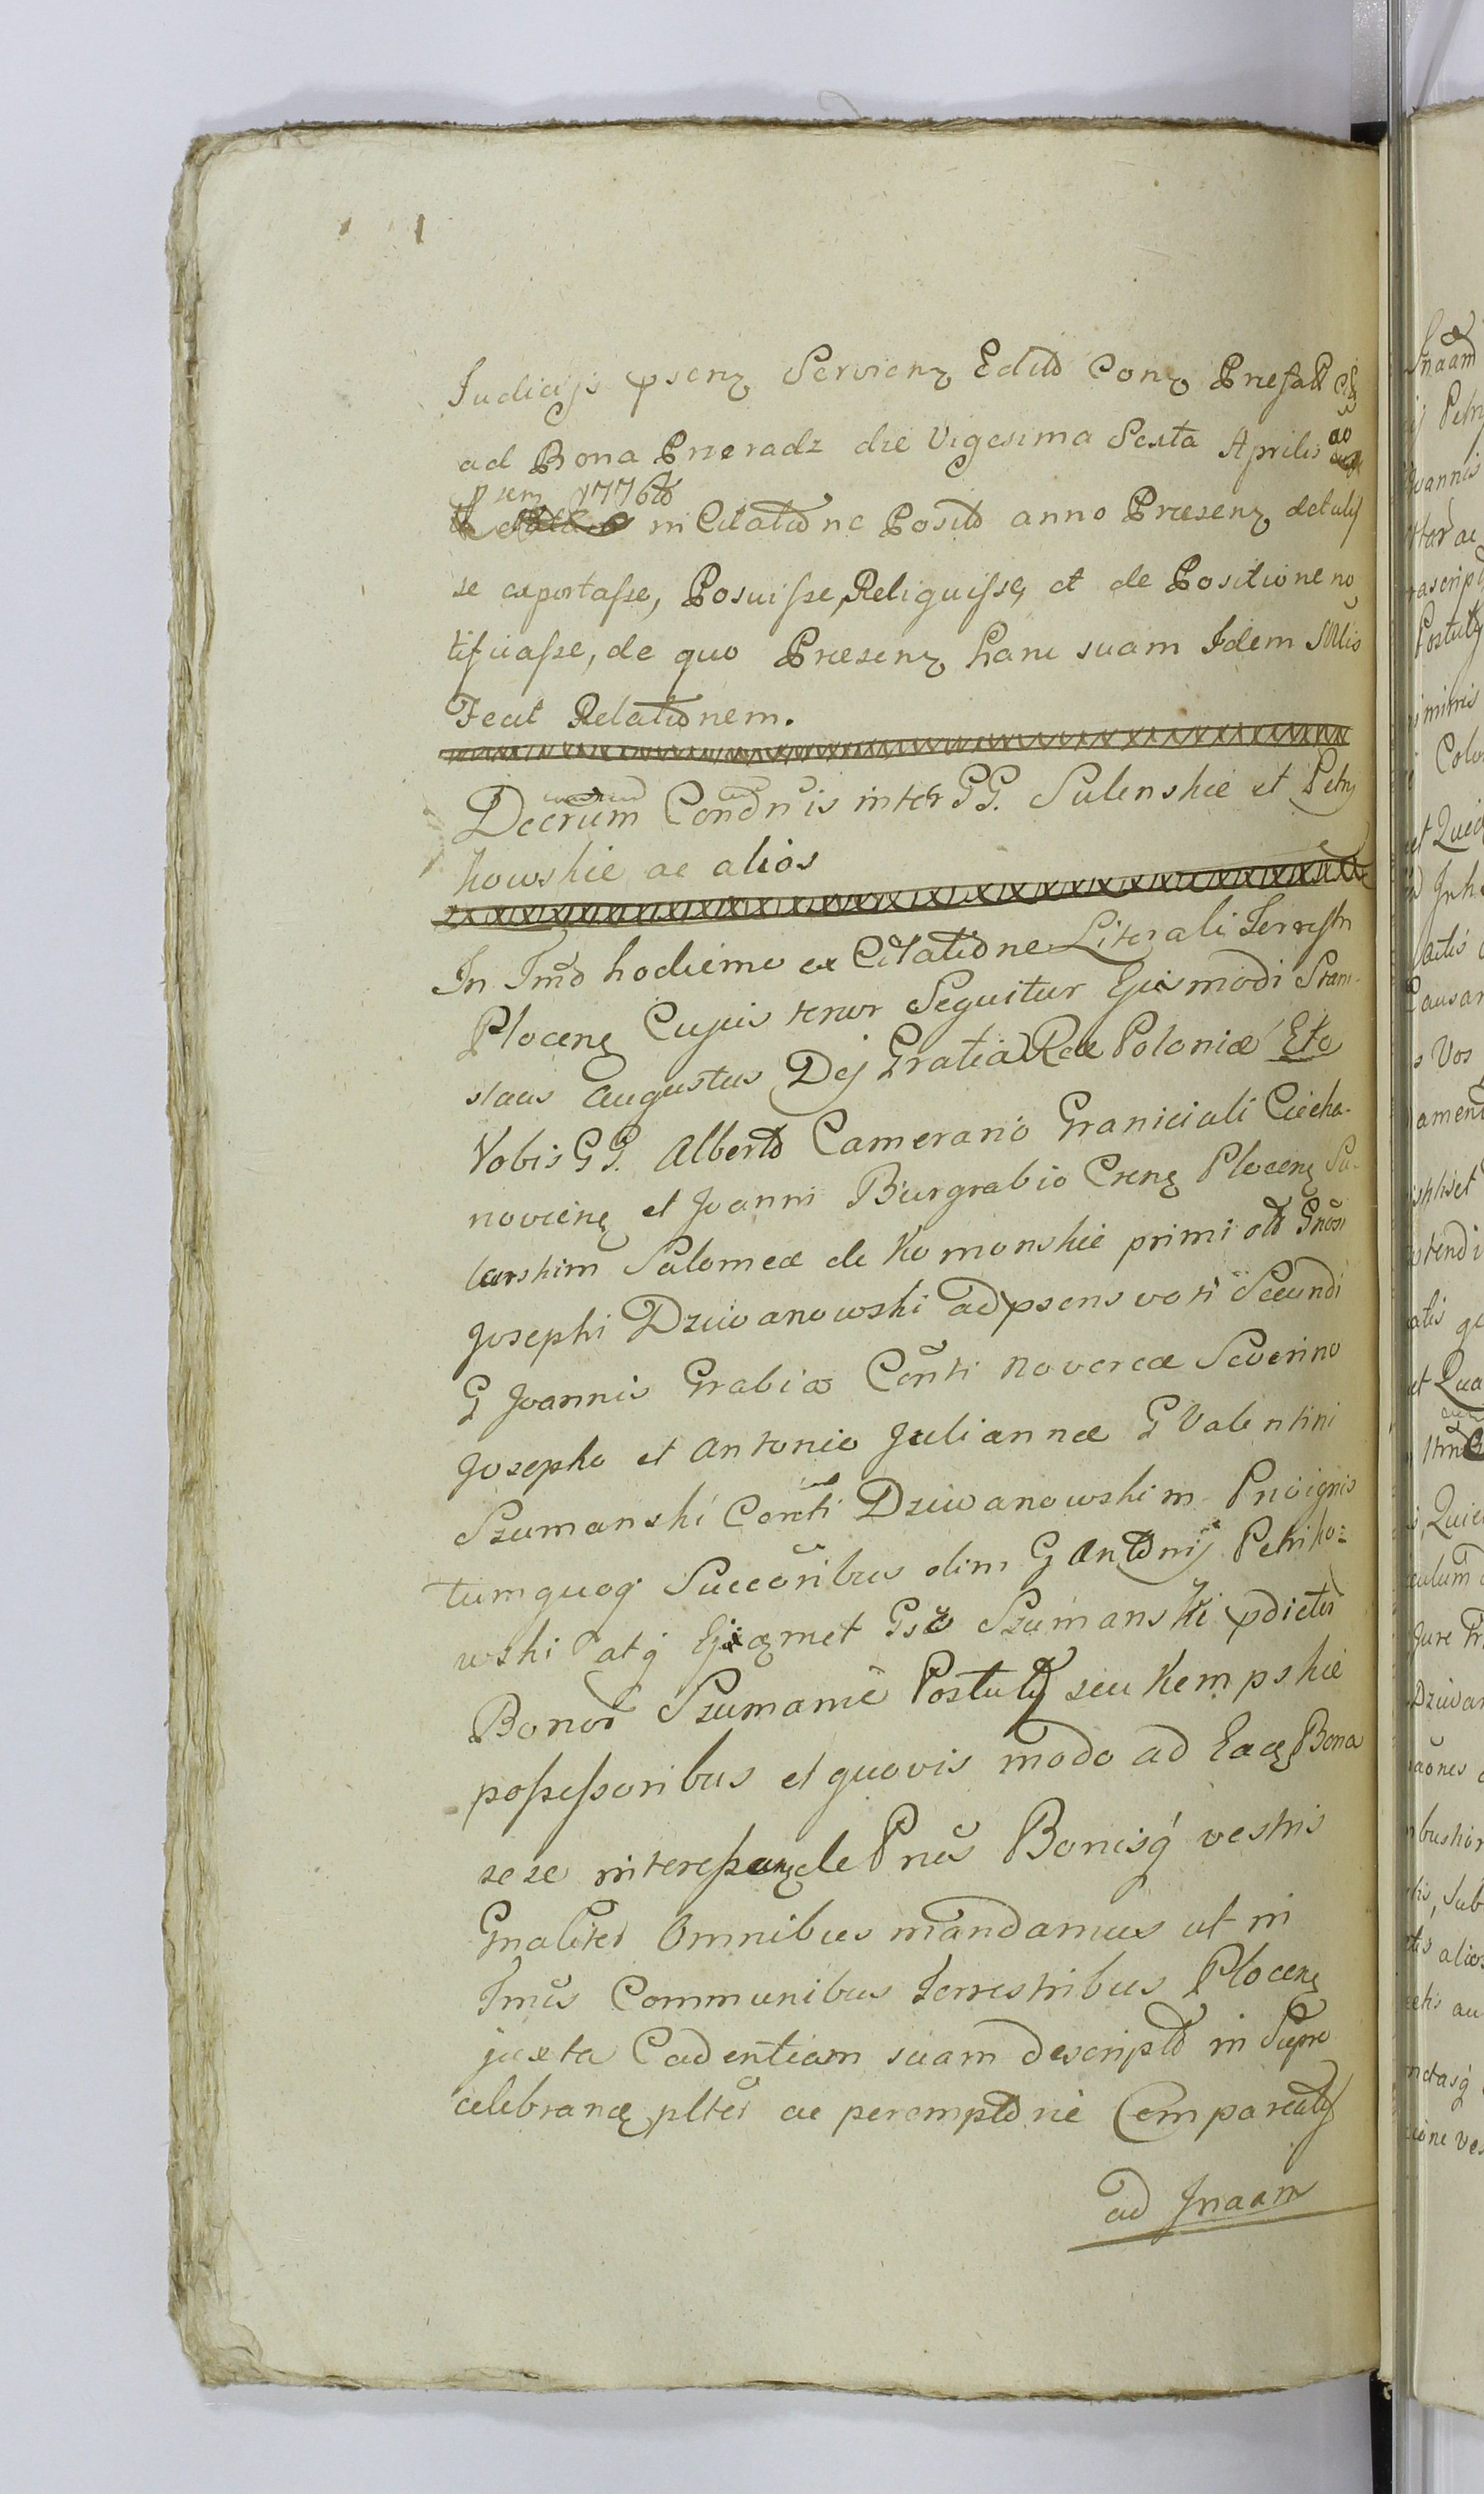 Judicijs psenz Servienz Edito Conz Præfat
ad Bona Przeradz die Vigesima Sexta Aprilis ao
psen 1776to
in Citatione Posito anno Præsenz detulit
se exportaſse, Posuiſse, Reliquiſse, et de Positione no
tificaſse, de quo Præsenz hanc suam Idem Mlis
Fecit Relationem.
Decrum Condnis inter GG. Sulerskie et Petry
kowskie ac alios
In Tmo hodierno ex Citatione Literali Terrestri
Plocenz Cujus tenor Sequitur Ejusmodi Stani
slaus Augustus Dej Gratia Rex Poloniæ Etc
Vobis GG. Alberto Camerario Graniciali Ciecha-
novienz et Joanni Burgrabio Crenz Plocenz Su-
lerskim Salomeæ de Komorskie primi olo Gnosi
Josephi Dziwanowski ad psens voti Secundi
G Joannis Grabia Conti Novercæ Severino
Josepho et Antonio Juliannæ G Valentini
Szumanski Conti Dziwanowskim Privignis
tumquoq Succoribus olim G Antonij Petriko=
wski atq Ejqzmet Gso Szumanski pdictor
Bonor Szumanie Postuly seu Kempskie
poſseſsoribus et quovis modo ad Eaqz Bona
sese intereſsanz de Pnis Bonisq vestris
Gnaliter Omnibus mandamus ut in
Tmis Communibus Terrestribus Plocenz
juxta Cadentiam suam descripto in Supre
celebranz plter ac peremptorie Compareatis
ad Jnaam